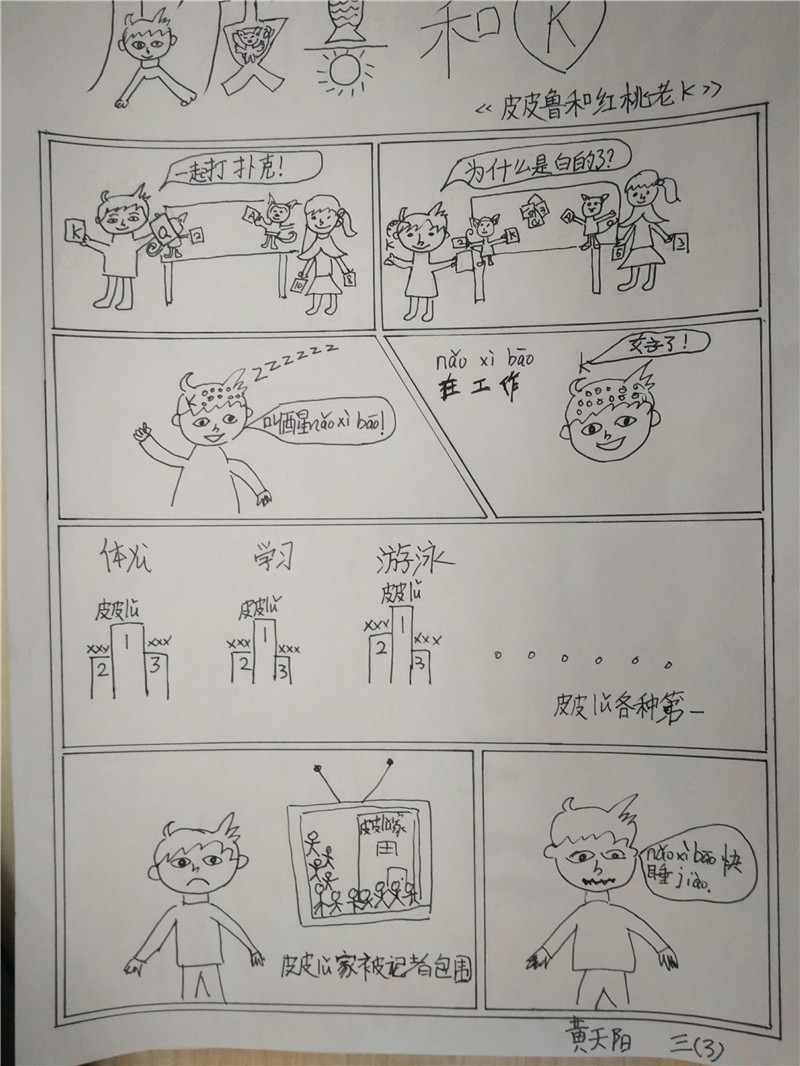 和 K
《皮皮鲁和红桃老K》
一起打扑克!
K Q 2 A 10 8
为什么是白的了?
2 K A 6 3
zzzzzzz
K
叫醒nǎo xì bāo!
nǎo xì bāo
在工作
K
好了!
体 学习 游泳
皮皮lǔ 皮皮lǔ 皮皮lǔ
xxx 1 xxx xxx 1 xxx xxx 1 xxx
2 3 2 3 2 3
皮皮lǔ各种第一
皮皮lǔ家
皮皮lǔ家被记者包围
nǎo xì bāo快
睡jiào.
黄天阳 三(3)